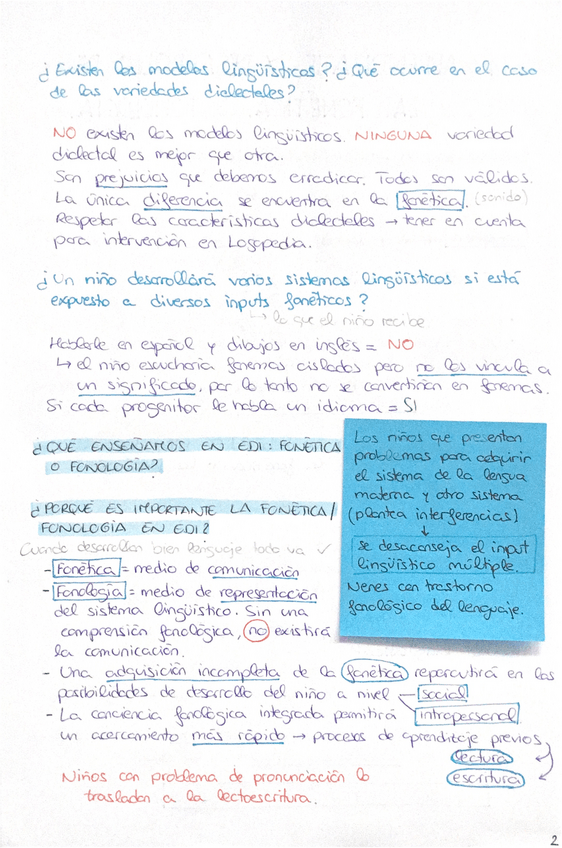 ¿Existen los modelos lingüísticos? ¿Qué ocurre en el caso
de las variedades dialectales?
NO existen los modelos lingüísticos. NINGUNA variedad
dialectal es mejor que otra.
Son prejuicios que debemos erradicar. Todas son válidas.
La única diferencia se encuentra en la fonética. (sonido)
Respetar las características dialectales → tener en cuenta
para intervención en Logopedia.
¿Un niño desarrollará varios sistemas lingüísticos si está
expuesto a diversos inputs fonéticos?
↳ lo que el niño recibe
Hablarle en español y dibujos en inglés = NO
↳ el niño escucharía fonemas aislados pero no los vincula a
un significado, por lo tanto no se convertirían en fonemas.
Si cada progenitor le habla un idioma = SI
¿QUÉ ENSEÑAMOS EN EDI: FONÉTICA
O FONOLOGÍA?
¿PORQUÉ ES IMPORTANTE LA FONÉTICA/
FONOLOGÍA EN EDI?
Cuando desarrollan bien lenguaje todo va ✓
- Fonética = medio de comunicación
- Fonología = medio de representación
del sistema lingüístico. Sin una
comprensión fonológica, no existirá
la comunicación.
Los niños que presentan
problemas para adquirir
el sistema de la lengua
materna y otro sistema
(plantea interferencias)
↓
se desaconseja el input
lingüístico múltiple.
Nenes con trastorno
fonológico del lenguaje.
- Una adquisición incompleta de la fonética repercutirá en las
posibilidades de desarrollo del niño a nivel social
intropersonal
- La conciencia fonológica integrada permitirá
un acercamiento más rápido → procesos de aprenditaje previos
lectura
escritura
Niños con problema de pronunciación lo
trasladan a la lectoescritura.
2